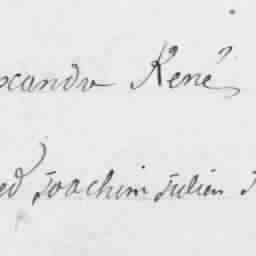 xandre René
ed Joachim Julien